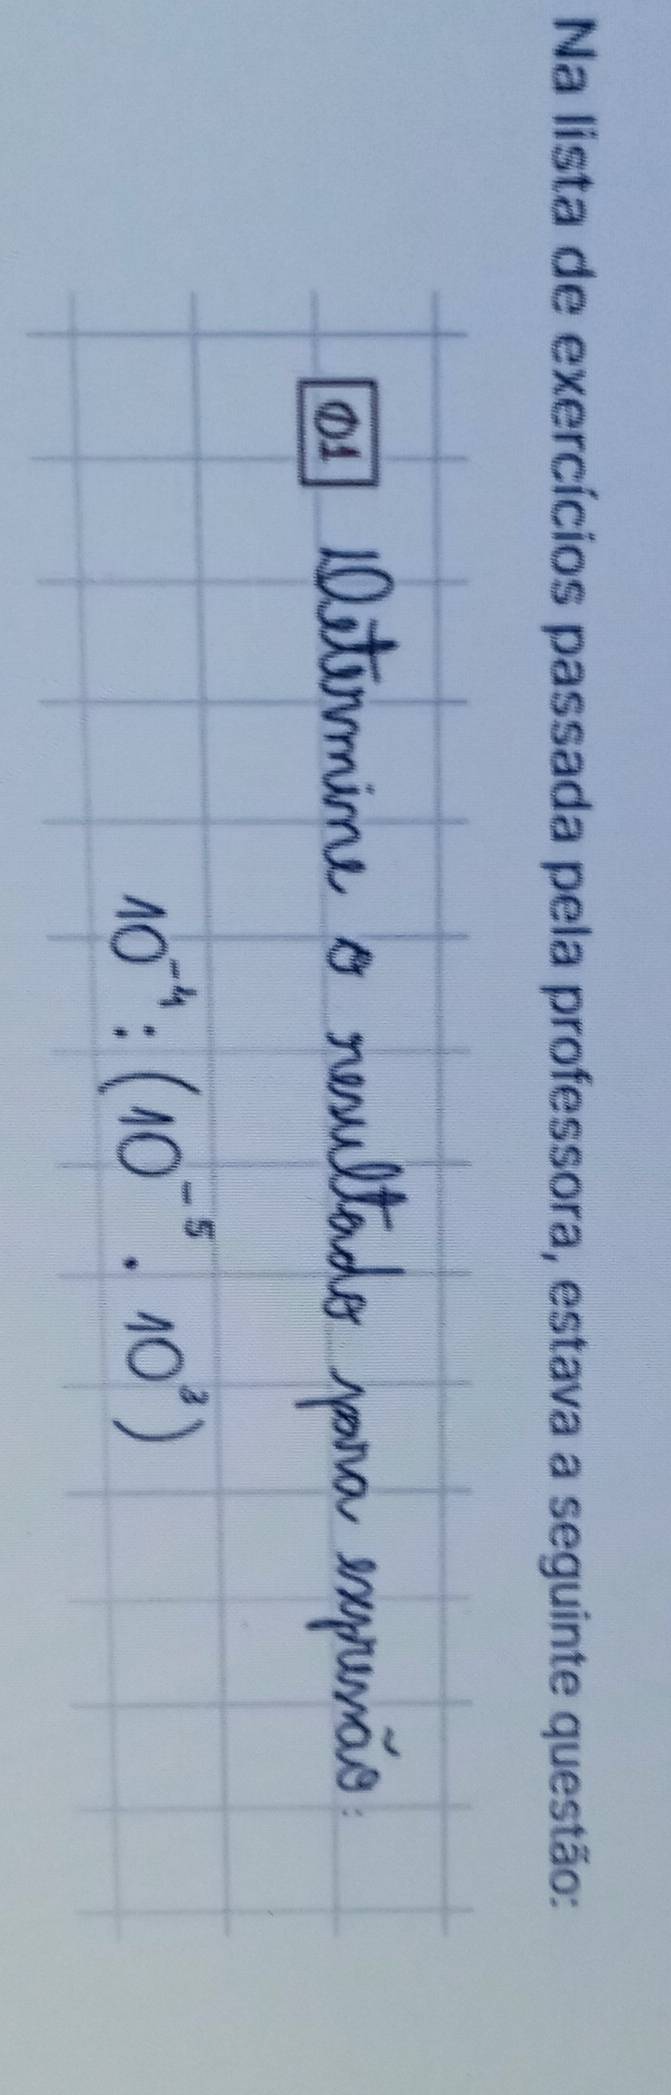 Na lista de exercícios passada pela professora, estava a seguinte questão:
01 Determine o resultado para expressão:
10⁻⁴ : (10⁻⁵ · 10³)